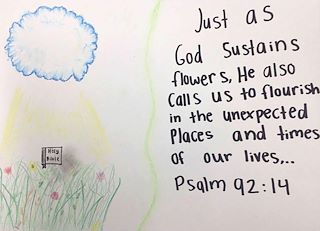 Holy
Bible
Just as
God Sustains
flowers, He also
Calls us to flourish
in the unexpected
Places and times
of our lives...
Psalm 92:14